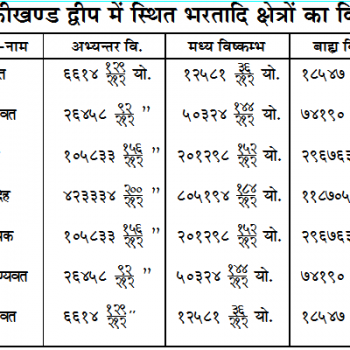 कीखण्ड द्वीप में स्थित भरतादि क्षेत्रों का वि
-नाम अभ्यन्तर वि. मध्य विष्कम्भ बाह्य वि
त ६६१४ १२९/२१२ यो. १२५८१ ३६/२१२ यो. १८५४७
वत २६४५८ ९२/२१२ ” ५०३२४ १४४/२१२ यो. ७४१९०
१०५८३३ १५६/२१२ ” २०१२९८ १५२/२१२ यो. २९६७६३
देह ४२३३३४ २००/२१२ ” ८०५१९४ १८४/२१२ यो. ११८७०५
यक १०५८३३ १५६/२१२ ” २०१२९८ १५२/२१२ यो. २९६७६३
ण्यवत २६४५८ ९२/२१२ ” ५०३२४ १४४/२१२ यो. ७४१९०
वत ६६१४ १२९/२१२ ” १२५८१ ३६/२१२ यो. १८५४७